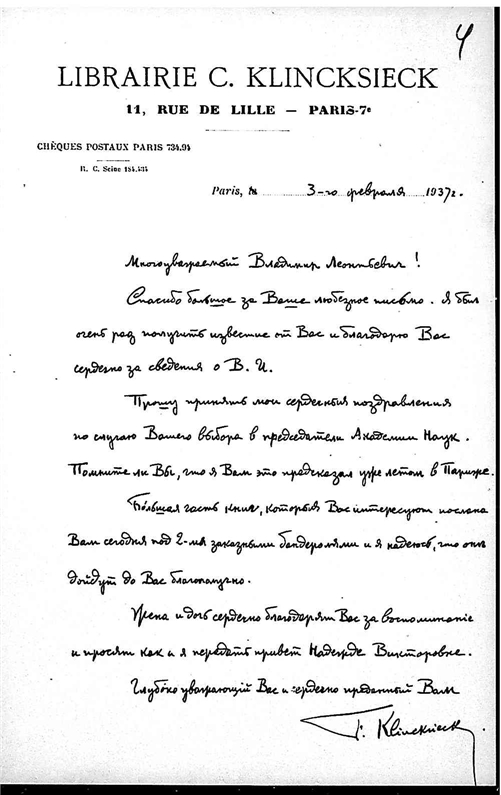 4
LIBRAIRIE C. KLINCKSIECK
11, RUE DE LILLE — PARIS-7e
CHÈQUES POSTAUX PARIS 734.94
R. C. Seine 184.434
Paris, le 3-го февраля 1937г.
Многоуважаемый Владимир Леонтьевич!
Спасибо большое за Ваше любезное письмо. Я был
очень рад получить известие от Вас и благодарю Вас
сердечно за сведения о В. И.
Прошу принять мои сердечныя поздравления
по случаю Вашего выбора в председатели Академии Наук.
Помните ли Вы, что я Вам это предсказал уже летом в Париже.
Большая часть книг, которыя Вас интересуют послана
Вам сегодня под 2-мя заказными бандеролями и я надеюсь, что они
дойдут до Вас благополучно.
Жена и дочь сердечно благодарят Вас за воспоминание
и просят как и я передать привет Надежде Викторовне.
Глубоко уважающий Вас и сердечно преданный Вам
F. Klincksieck